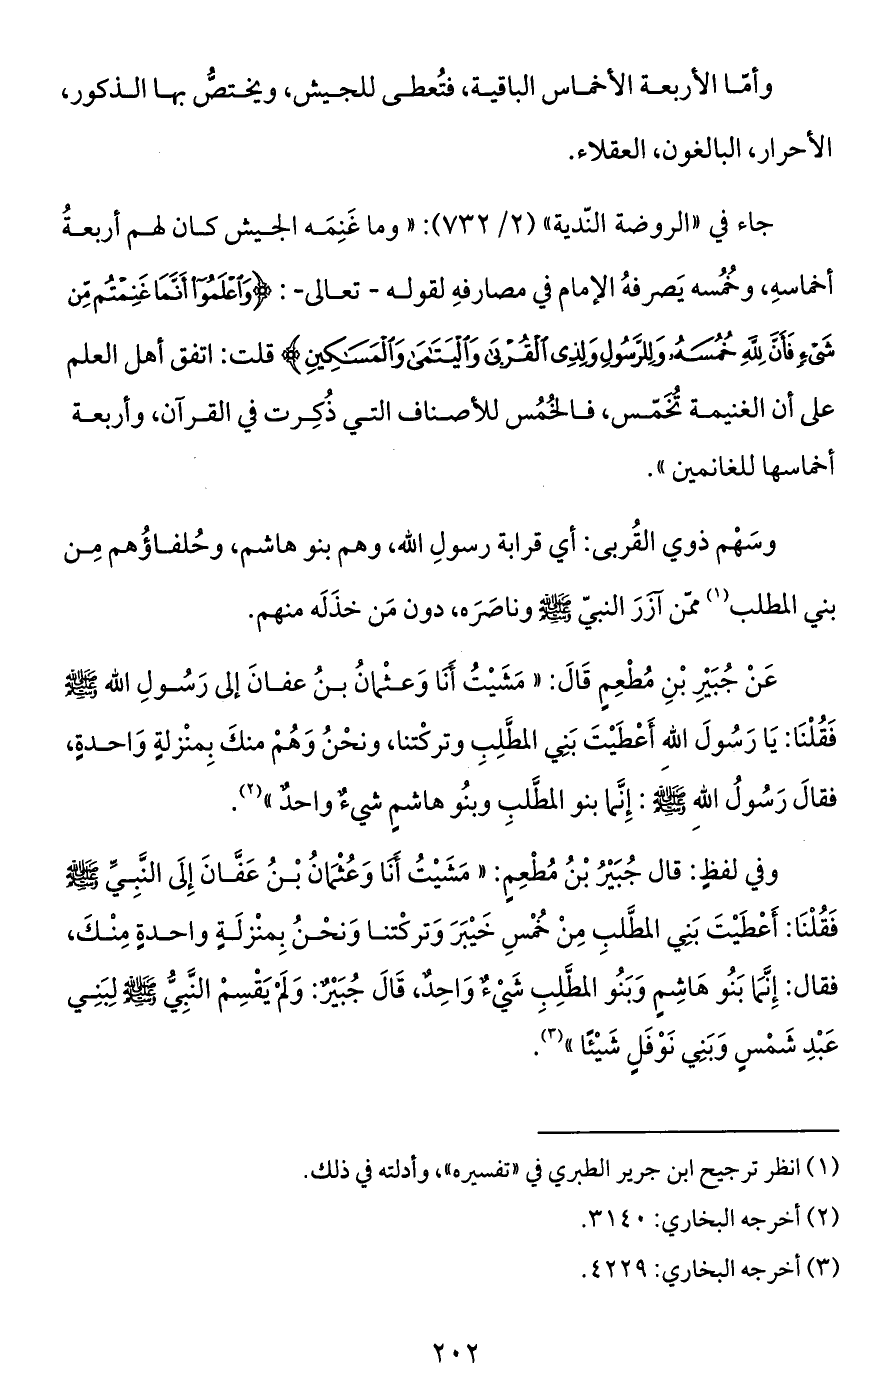 وأمّا الأربعة الأخماس الباقية، فتُعطى للجيش، ويختصُّ بها الذكور،
الأحرار، البالغون، العقلاء.
جاء في «الروضة النّدية» (٢/ ٧٣٢): « وما غَنِمَه الجيش كان لهم أربعةُ
أخماسهِ، وخُمُسه يَصرفهُ الإمام في مصارفهِ لقوله - تعالى- : ﴿وَٱعۡلَمُوٓاْ أَنَّمَا غَنِمۡتُم مِّن
شَيۡءٖ فَأَنَّ لِلَّهِ خُمُسَهُۥ وَلِلرَّسُولِ وَلِذِي ٱلۡقُرۡبَىٰ وَٱلۡيَتَٰمَىٰ وَٱلۡمَسَٰكِينِ﴾ قلت: اتفق أهل العلم
على أن الغنيمة تُخَمّس، فالخُمُس للأصناف التي ذُكِرت في القرآن، وأربعة
أخماسها للغانمين ».
وسَهْم ذوي القُربى: أي قرابة رسولِ الله، وهم بنو هاشم، وحُلفاؤُهم مِن
بني المطلب(١) ممّن آزَرَ النبيّ ﷺ وناصَرَه، دون مَن خذَلَه منهم.
عَنْ جُبَيْرِ بْنِ مُطْعِمٍ قَالَ: « مَشَيْتُ أَنَا وَعثْمانُ بنُ عفانَ إلى رَسُولِ الله ﷺ
فَقُلْنَا: يَا رَسُولَ اللهِ أَعْطَيْتَ بَنِي المطَّلِبِ وتركْتنا، ونحْنُ وَهُمْ منكَ بِمنْزلةٍ وَاحدةٍ،
فقالَ رَسُولُ اللهِ ﷺ : إِنَّما بنو المطَّلبِ وبنُو هاشمٍ شيءٌ واحدٌ »(٢).
وفي لفظٍ: قال جُبَيْرُ بْنُ مُطْعِمٍ: « مَشَيْتُ أَنَا وَعُثْمَانُ بْنُ عَفَّانَ إِلَى النَّبِيِّ ﷺ
فَقُلْنَا: أَعْطَيْتَ بَنِي المطَّلبِ مِنْ خُمْسِ خَيْبَرَ وَتركْتنا وَنحْنُ بِمنْزلَةٍ واحدةٍ مِنْكَ،
فقال: إِنَّمَا بَنُو هَاشِمٍ وَبَنُو المطَّلِبِ شَيْءٌ وَاحِدٌ، قَالَ جُبَيْرٌ: وَلَمْ يَقْسِمْ النَّبِيُّ ﷺ لِبَنِي
عَبْدِ شَمْسٍ وَبَنِي نَوْفَلٍ شَيْئًا »(٣).
(١) انظر ترجيح ابن جرير الطبري في «تفسيره»، وأدلته في ذلك.
(٢) أخرجه البخاري: ٣١٤٠.
(٣) أخرجه البخاري: ٤٢٢٩.
٢٠٢